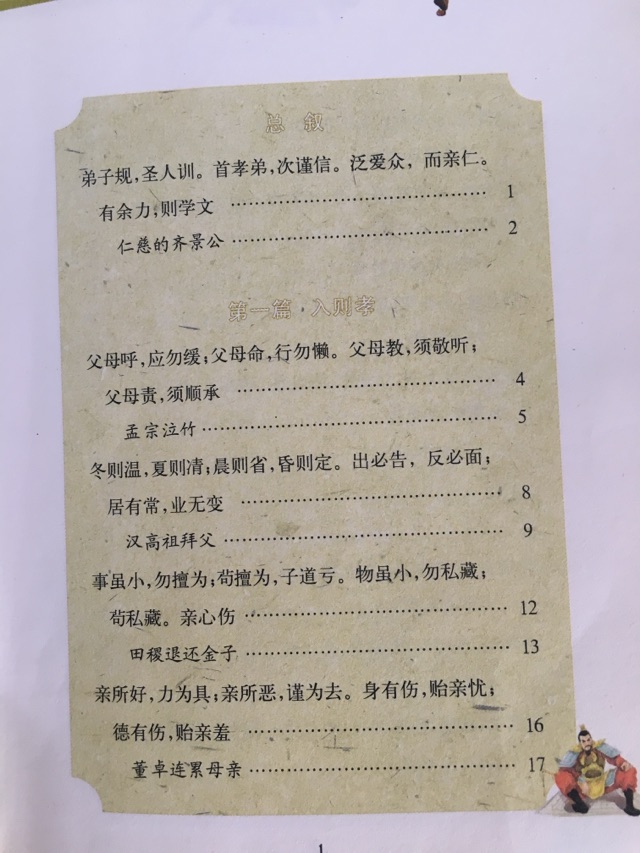 总 叙
弟子规,圣人训。首孝弟,次谨信。泛爱众，而亲仁。
有余力,则学文 …………………………………… 1
仁慈的齐景公 …………………………………… 2
第一篇·入则孝
父母呼,应勿缓;父母命,行勿懒。父母教,须敬听;
父母责,须顺承 …………………………………… 4
孟宗泣竹 …………………………………… 5
冬则温,夏则清;晨则省,昏则定。出必告，反必面;
居有常,业无变 …………………………………… 8
汉高祖拜父 …………………………………… 9
事虽小,勿擅为;苟擅为,子道亏。物虽小,勿私藏;
苟私藏。亲心伤 …………………………………… 12
田稷退还金子 …………………………………… 13
亲所好,力为具;亲所恶,谨为去。身有伤,贻亲忧;
德有伤,贻亲羞 …………………………………… 16
董卓连累母亲 …………………………………… 17
1